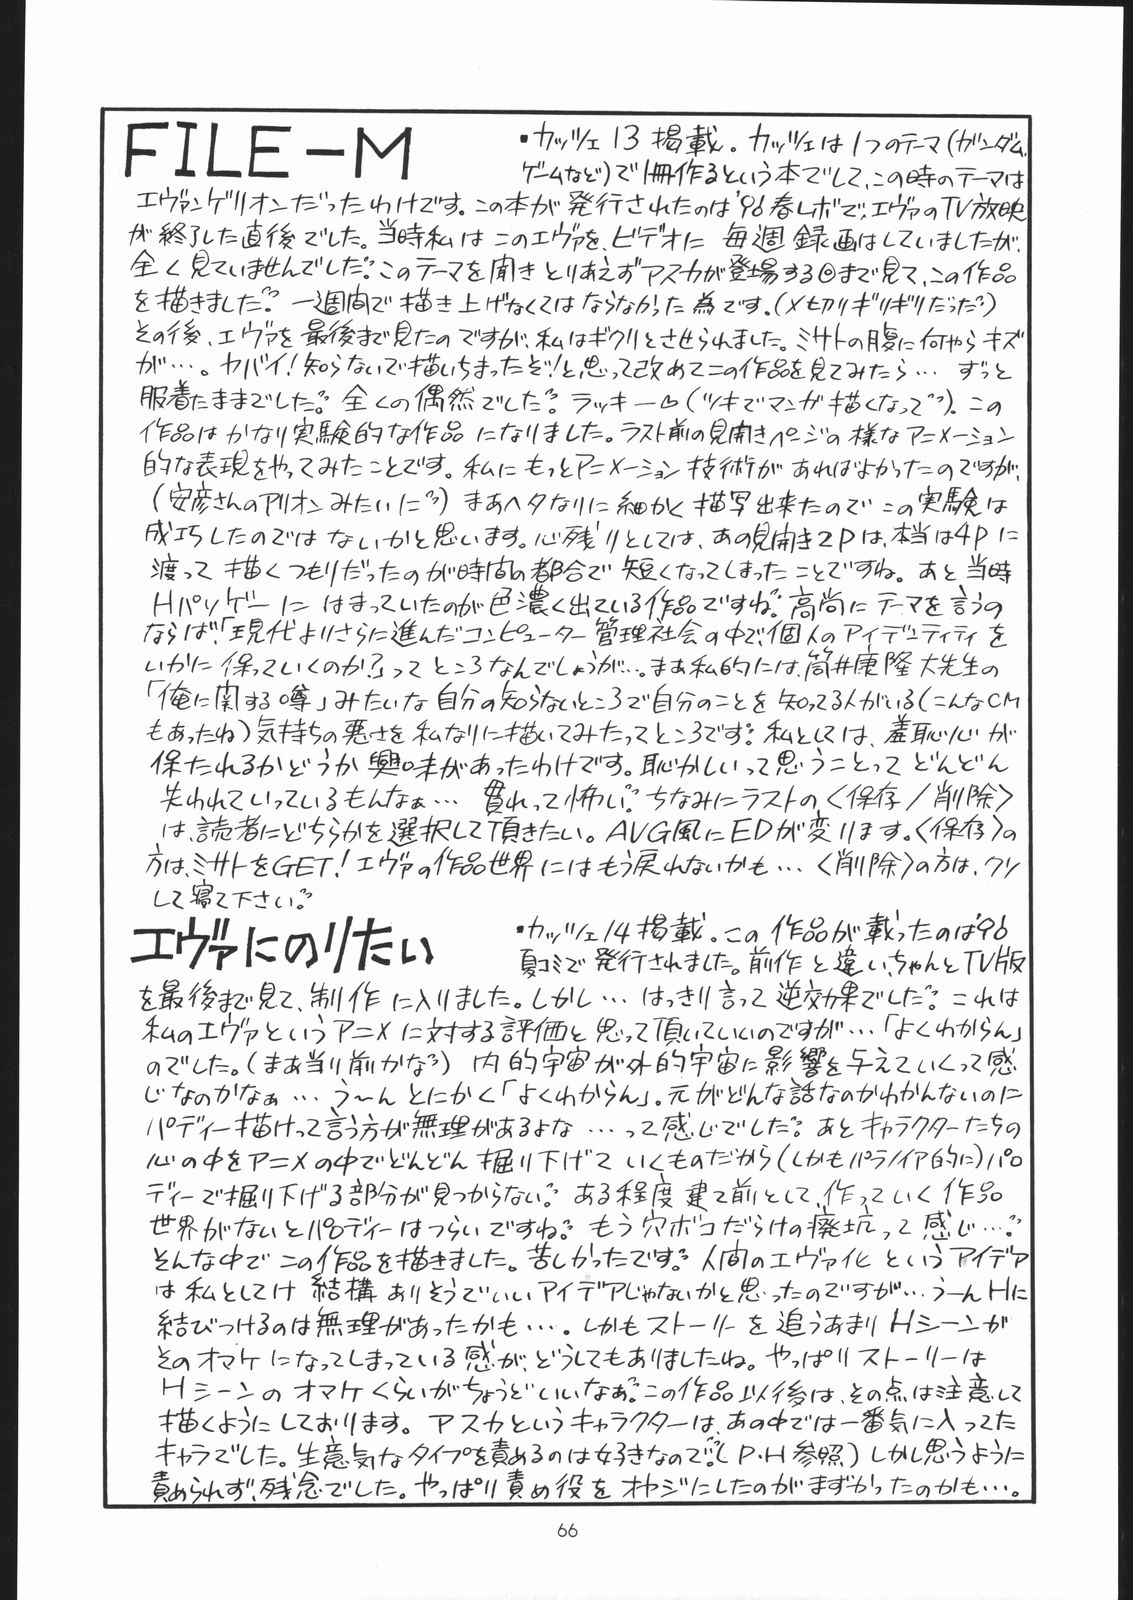 FILE-M
・カッツェ13掲載。カッツェは1つのテーマ(ガンダム、
ゲームなど)で1冊作るという本でして、この時のテーマは
エヴァンゲリオンだったわけです。この本が発行されたのは'96春レボで、エヴァのTV放映
が終了した直後でした。当時私はこのエヴァを、ビデオに毎週録画はしていましたが、
全く見ていませんでした。このテーマを聞きとりあえずアスカが登場する⑧まで見て、この作品
を描きました。一週間で描き上げなくてはならなかった為です。(〆切りギリギリだった)
その後、エヴァを最後まで見たのですが、私はギクリとさせられました。ミサトの腹に何やらキズ
が…。ヤバイ!知らないで描いちまったぞ!と思って改めてこの作品を見てみたら…ずっと
服着たままでした。全くの偶然でした。ラッキー♡(ツキでマンガ描くなって)。この
作品はかなり実験的な作品になりました。ラスト前の見開きページの様なアニメーション
的な表現をやってみたことです。私にもっとアニメーション技術があればよかったのですが、
(安彦さんのアリオンみたいに)まあヘタなりに細かく描写出来たのでこの実験は
成巧したのではないかと思います。心残りとしては、あの見開き2Pは、本当は4Pに
渡って描くつもりだったのが時間の都合で短くなってしまったことですね。あと当時
Hパソゲーにはまっていたのが色濃く出ている作品ですね。高尚にテーマを言うの
ならば、「現代よりさらに進んだコンピューター管理社会の中で、個人のアイデンティティを
いかに保っていくのか?」ってところなんでしょうが…。まあ私的には、筒井康隆大先生の
「俺に関する噂」みたいな自分の知らないところで自分のことを知ってる人がいる(こんなCM
もあったね)気持ちの悪さを私なりに描いてみたってところです。私としては、羞恥心が
保たれるかどうか興味があったわけです。恥かしいって思うことってどんどん
失われていっているもんなぁ…慣れって怖い。ちなみにラストの〈保存/削除〉
は、読者にどちらかを選択して頂きたい。AVG風にEDが変ります。〈保存〉の
方は、ミサトをGET!エヴァの作品世界にはもう戻れないかも…〈削除〉の方は、クソ
して寝て下さい。
エヴァにのりたい
・カッツェ14掲載。この作品が載ったのは'96
夏コミで発行されました。前作と違い、ちゃんとTV版
を最後まで見て、制作に入りました。しかし…はっきり言って逆効果でした。これは
私のエヴァというアニメに対する評価と思って頂いていいのですが…「よくわからん」
のでした。(まあ当り前かな)内的宇宙が外的宇宙に影響を与えていくって感
じなのかなぁ…う〜んとにかく「よくわからん」。元がどんな話なのかわかんないのに
パロディー描けって言う方が無理があるよな…って感じでした。あとキャラクターたちの
心の中をアニメの中でどんどん掘り下げていくものだから(しかもパラノイア的に)パロ
ディーで掘り下げる部分が見つからない。ある程度建て前として、作っていく作品
世界がないとパロディーはつらいですね。もう穴ボコだらけの廃坑って感じ…。
そんな中でこの作品を描きました。苦しかったです。人間のエヴァ化というアイデア
は私としてけ結構ありそうでいいアイデアじゃないかと思ったのですが…うーんHに
結びつけるのは無理があったかも…。しかもストーリーを追うあまりHシーンが
そのオマケになってしまっている感が、どうしてもありましたね。やっぱりストーリーは
Hシーンのオマケくらいがちょうどいいなあ。この作品以後は、その点は注意して
描くようにしております。アスカというキャラクターは、あの中では一番気に入ってた
キャラでした。生意気なタイプを責めるのは好きなので。(P・H参照)しかし思うように
責められず、残念でした。やっぱり責め役をオヤジにしたのがまずかったのかも…。
66